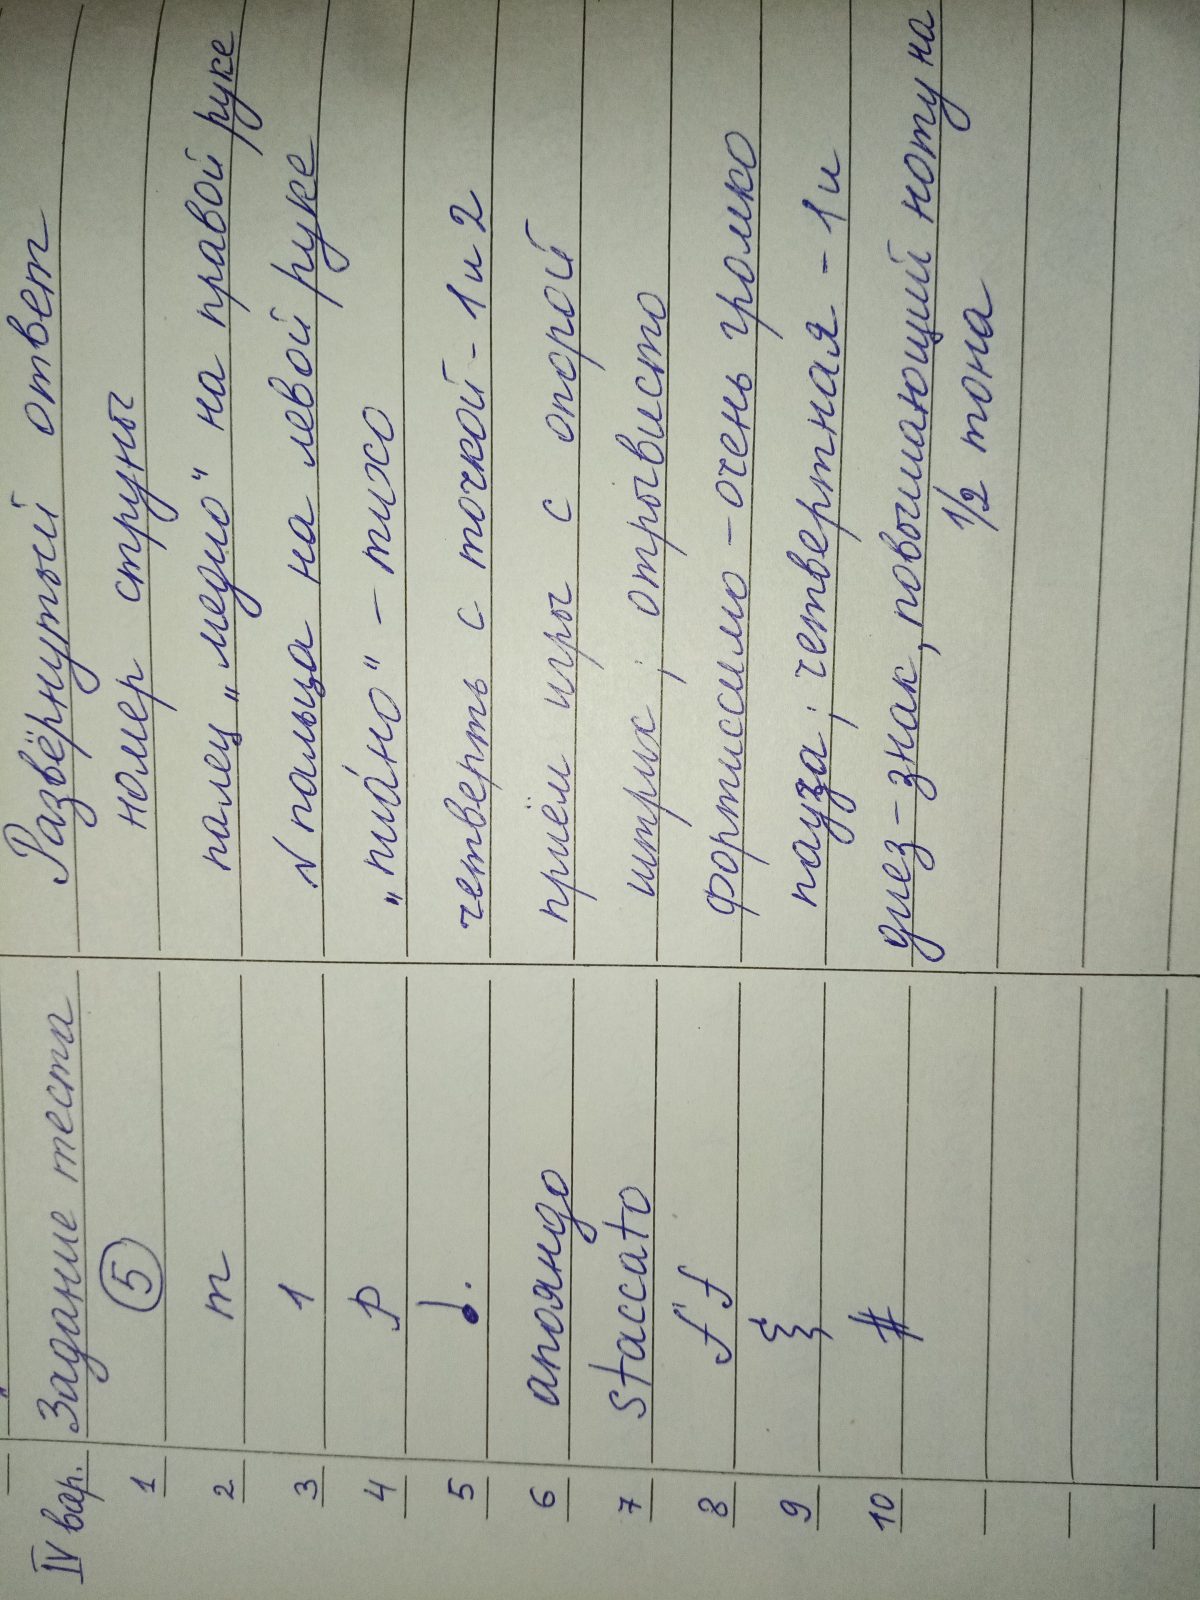 IV вар. Задание теста Развёрнутый ответ
1 5 номер струны
2 m палец „медио" на правой руке
3 1 № пальца на левой руке
4 p „пиа́но" – тихо
5 ♩. четверть с точкой – 1 и 2
6 апояндо приём игры с опорой
7 staccato штрих; отрывисто
8 ff фортиссимо – очень громко
9 𝄽 пауза; четвертная – 1 и
10 # диез – знак, повышающий ноту на
1/2 тона